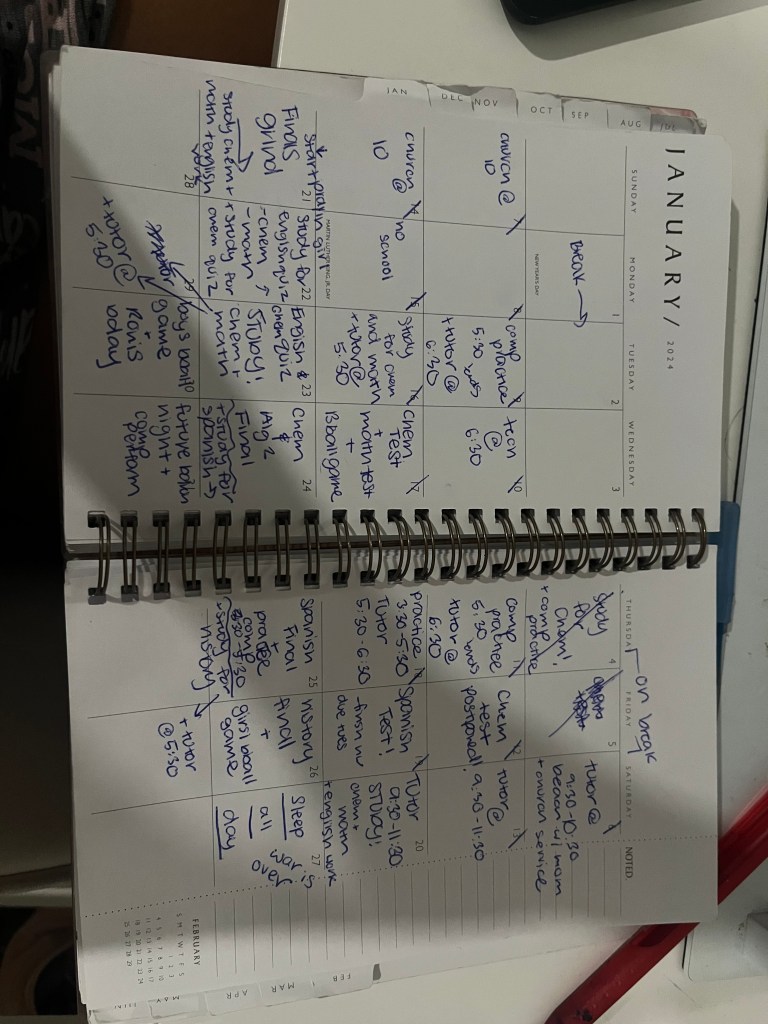 JANUARY / 2024
SUNDAY
MONDAY
TUESDAY
WEDNESDAY
THURSDAY
FRIDAY
SATURDAY
NOTED
on break
1
Break →
NEW YEAR'S DAY
2
3
4
study
for
Chem!
+ comp
practice
5
tutor @
9:30-10:30
beach w/ mom
+ church service
church @
10
comp
practice
5:30 ends
+ tutor @
6:30
10
tech
@
6:30
comp
practice
5:30 ends
tutor @
6:30
12
Chem
test
postponed!
13
tutor @
9:30-11:30
church @
10
no
school
MARTIN LUTHER KING, JR. DAY
study
for chem
and math
+ tutor @
5:30
Chem
Test
+
math test
+
Bball game
practice
3:30-5:30
Tutor
5:30-6:30
Spanish
Test!
20
Tutor
9:30-11:30
STUDY!
chem +
math
+ english work
21
Finals
grind
study chem +
math + english
22
study for
english quiz
- chem
- math
+ study for
chem quiz
23
English &
chem quiz
STUDY!
chem +
math
24
Chem
&
Alg 2
Final
+ study for
spanish →
25
Spanish
Final
+
comp
practice
3:30-5:30
+ study for
history
26
history
final
+
girls bball
game
27
Sleep
all
day
war is
over
28
+ tutor @
5:30
boys bball
game
+
night +
comp
perform
+ tutor
@ 5:30
FEBRUARY
S M T W T F S
1 2 3
4 5 6 7 8 9 10
11 12 13 14 15 16 17
18 19 20 21 22 23 24
25 26 27 28 29
JAN
DEC
NOV
OCT
SEP
AUG
FEB
MAR
APR
MAY